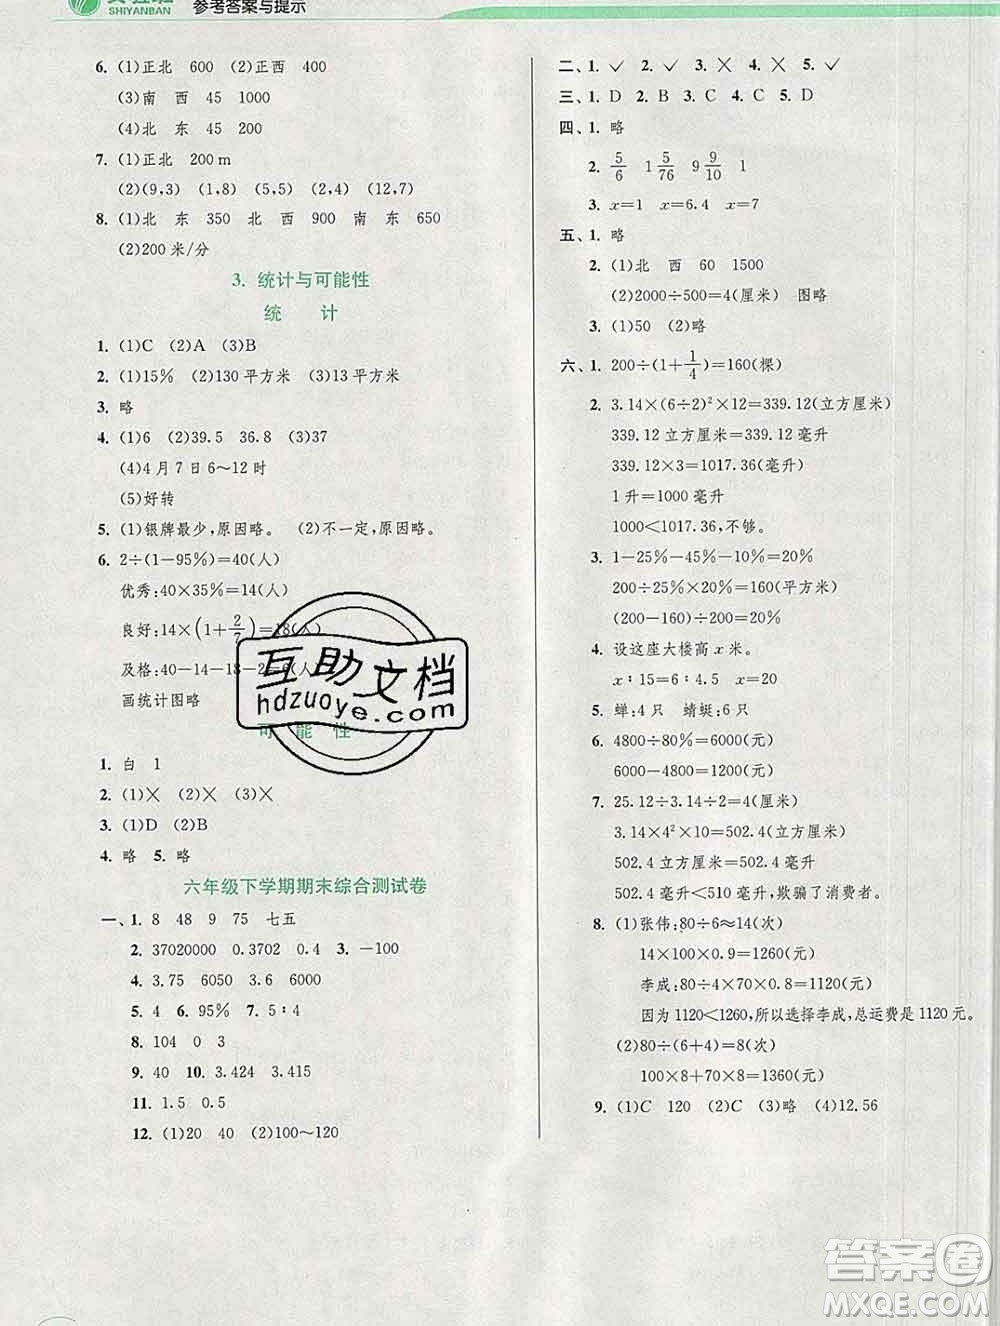 SHIYANBAN 参考答案与提示
6. (1)正北 600 (2)正西 400
(3)南 西 45 1000
(4)北 东 45 200
7. (1)正北 200 m
(2)(9,3) (1,8) (5,5) (2,4) (12,7)
8. (1)北 东 350 北 西 900 南 东 650
(2)200 米/分
3. 统计与可能性
统 计
1. (1)C (2)A (3)B
2. (1)15% (2)130 平方米 (3)13 平方米
3. 略
4. (1)6 (2)39.5 36.8 (3)37
(4)4 月 7 日 6～12 时
(5)好转
5. (1)银牌最少,原因略。 (2)不一定,原因略。
6. 2÷(1−95%)=40(人)
优秀:40×35%=14(人)
良好:14×(1+2/7)=18(人)
及格:40−14−18−2=6(人)
画统计图略
可 能 性
1. 白 1
2. (1)× (2)× (3)×
3. (1)D (2)B
4. 略 5. 略
六年级下学期期末综合测试卷
一、1. 8 48 9 75 七五
2. 37020000 0.3702 0.4 3. −100
4. 3.75 6050 3.6 50000
5. 4 6. 95% 7. 5∶4
8. 104 0 3
9. 40 10. 3.424 3.415
11. 1.5 0.5
12. (1)20 40 (2)100～120
二、1. √ 2. √ 3. × 4. × 5. √
三、1. D 2. B 3. C 4. C 5. D
四、1. 略
2. 5/6 1 5/76 9 9/10 1
3. x=1 x=6.4 x=7
五、1. 略
2. (1)北 西 60 1500
(2)2000÷500=4(厘米) 图略
3. (1)50 (2)略
六、1. 200÷(1+1/4)=160(棵)
2. 3.14×(6÷2)²×12=339.12(立方厘米)
339.12 立方厘米=339.12 毫升
339.12×3=1017.36(毫升)
1 升=1000 毫升
1000<1017.36,不够。
3. 1−25%−45%−10%=20%
200÷25%×20%=160(平方米)
(200−160)÷200=20%
4. 设这座大楼高 x 米。
x∶15=6∶4.5 x=20
5. 蝉:4 只 蜻蜓:6 只
6. 4800÷80%=6000(元)
6000−4800=1200(元)
7. 25.12÷3.14÷2=4(厘米)
3.14×4²×10=502.4(立方厘米)
502.4 立方厘米=502.4 毫升
502.4 毫升<510 毫升,欺骗了消费者。
8. (1)张伟:80÷6≈14(次)
14×100×0.9=1260(元)
李成:80÷4×70×0.8=1120(元)
因为 1120<1260,所以选择李成,总运费是 1120 元。
(2)80÷(6+4)=8(次)
100×8+70×8=1360(元)
9. (1)C 120 (2)C (3)略 (4)12.56
互助文档
hdzuoye.com
答案圈
MXQE.COM